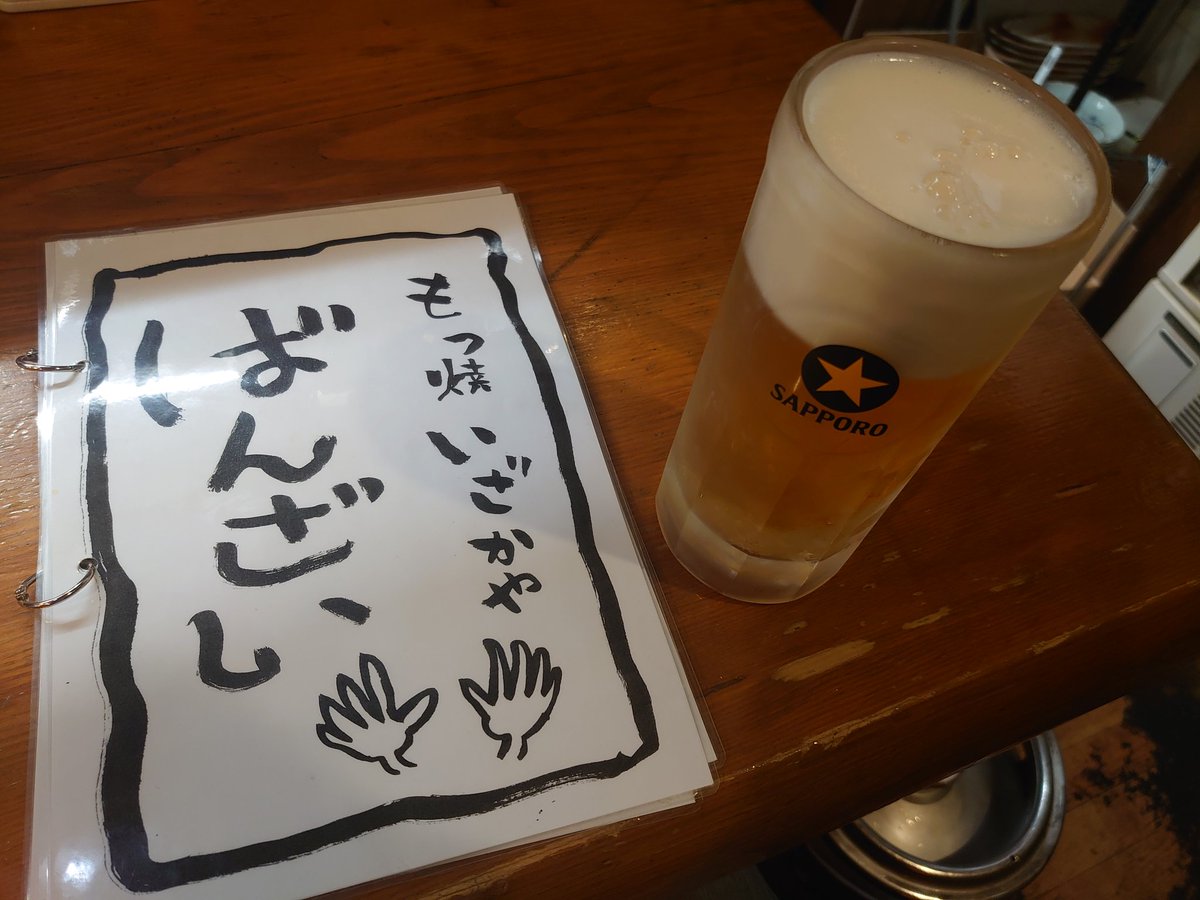 もつ焼 いざかや
ばんざい
SAPPORO